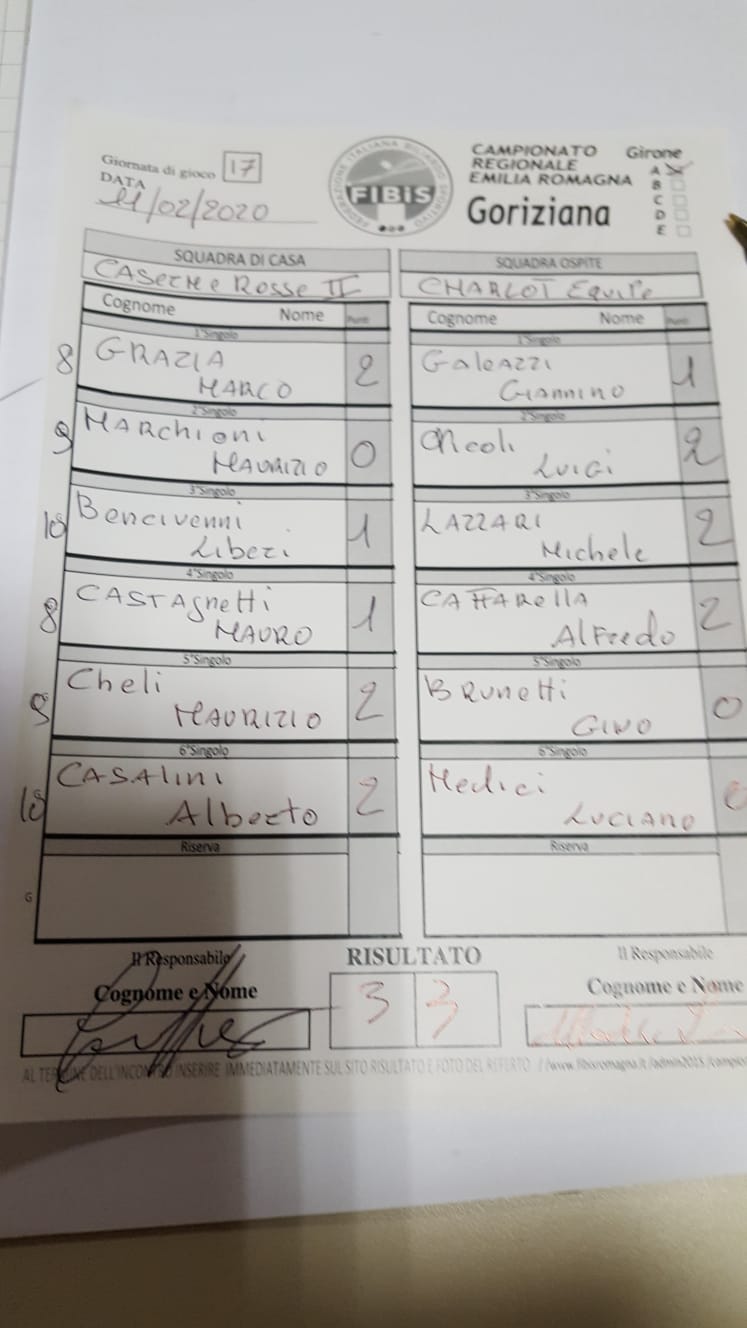 Giornata di gioco 17
DATA
11/02/2020
FEDERAZIONE ITALIANA BILIARDO SPORTIVO
FIBIS
CAMPIONATO
REGIONALE
EMILIA ROMAGNA
Goriziana
Girone
A
B
C
D
E
SQUADRA DI CASA
CASERME ROSSE II
Cognome Nome Punti
1°Singolo
8 GRAZIA
MARCO 2
2°Singolo
9 MARCHIONI
MAURIZIO 0
3°Singolo
10 Bencivenni
Liberi 1
4°Singolo
8 CASTAgnetti
MAURO 1
5°Singolo
9 Cheli
MAURIZIO 2
6°Singolo
10 CASALINI
Alberto 2
Riserva
G
SQUADRA OSPITE
CHARLOT EQUIPE
Cognome Nome Punti
1°Singolo
GaleAzzi
GIANNINO 1
2°Singolo
LUIGI 2
3°Singolo
LAZZARI
Michele 2
4°Singolo
CAFFARellA
AlFredo 2
5°Singolo
BRUNETTI
GINO 0
6°Singolo
Medici
LUCIANO 0
Riserva
Il Responsabile
Cognome e Nome
RISULTATO
3 3
Il Responsabile
Cognome e Nome
AL TERMINE DELL'INCONTRO INSERIRE IMMEDIATAMENTE SUL SITO RISULTATO E FOTO DEL REFERTO